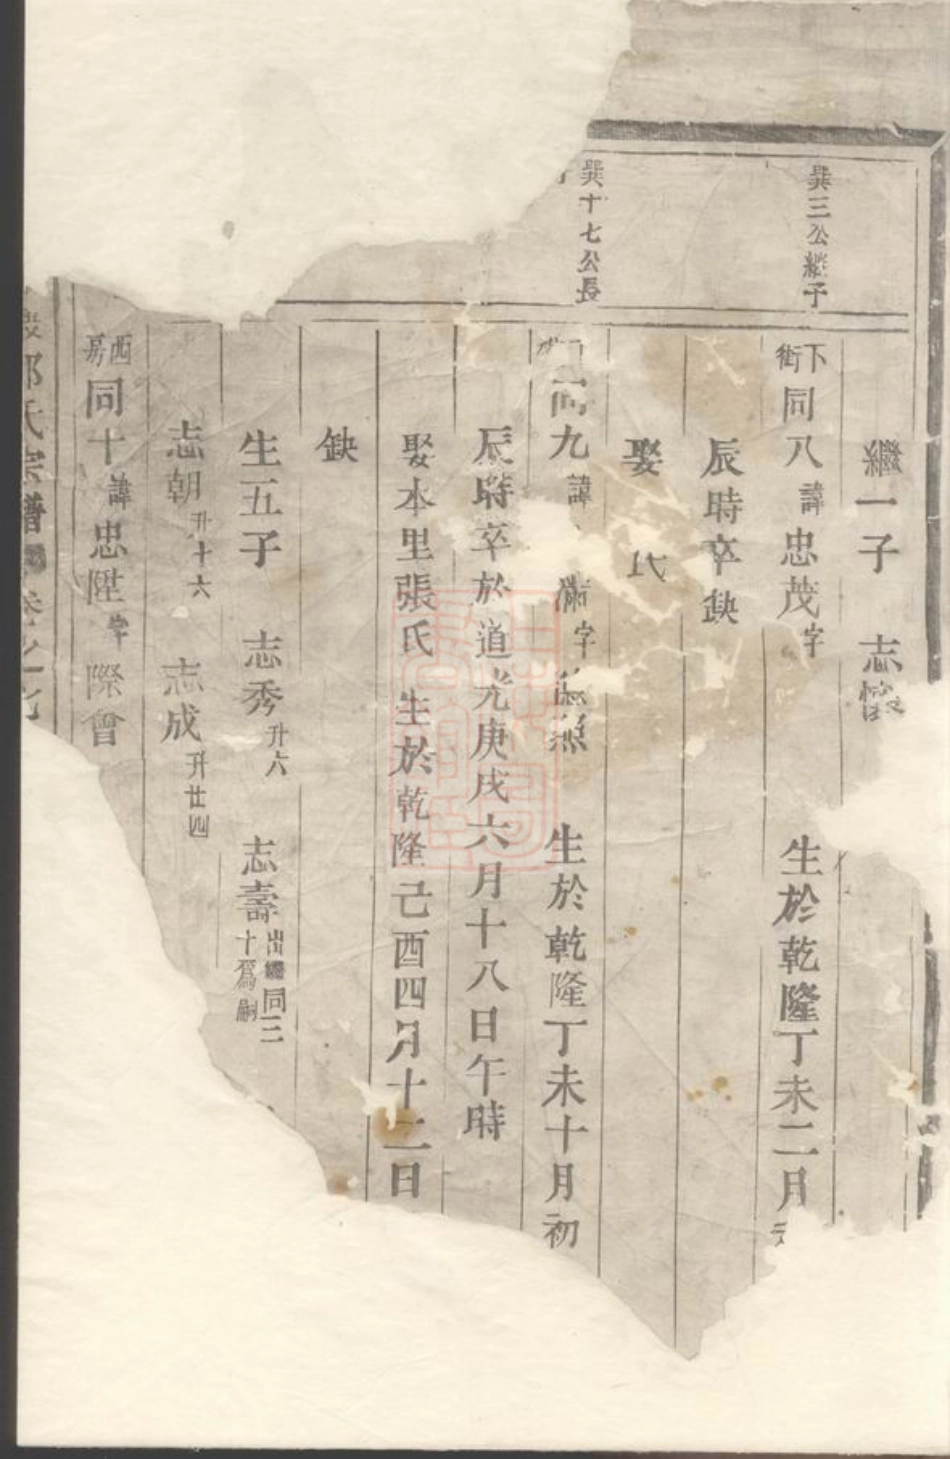 巽三公繼子
繼一子 志
下街同八諱忠茂字 生於乾隆丁未二月
辰時卒缺
娶 氏
巽十七公長
同九諱 字 生於乾隆丁未十月初
辰時卒於道光庚戌六月十八日午時
娶本里張氏 生於乾隆己酉四月十二日
缺
生五子 志秀升六 志壽出繼同三十爲嗣
志朝升十六 志成升廿四
西房同十諱忠陞字際會
氏宗譜